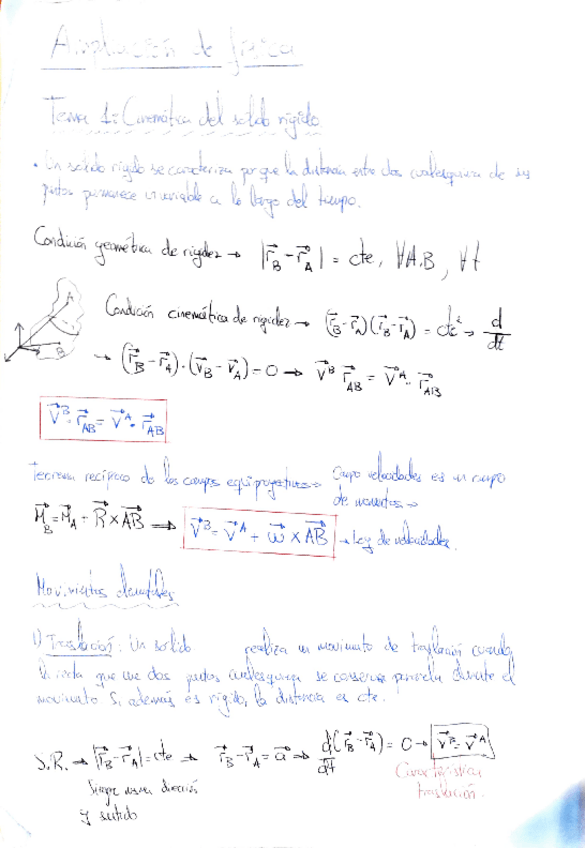 Ampliación de física
Tema 1: Cinemática del sólido rígido
• Un sólido rígido se caracteriza porque la distancia entre dos cualesquiera de sus
puntos permanece invariable a lo largo del tiempo.
Condición geométrica de rigidez → |r⃗_B - r⃗_A| = cte, ∀A,B, ∀t
A
B
Condición cinemática de rigidez → (r⃗_B - r⃗_A)(r⃗_B - r⃗_A) = cte² → d/dt
→ (r⃗_B - r⃗_A)·(v⃗_B - v⃗_A) = 0 → v⃗^B r⃗_AB = v⃗^A · r⃗_AB
v⃗^B · r⃗_AB = v⃗^A · r⃗_AB
Teorema recíproco de los campos equiproyectivos → Campo velocidades es un campo
de momentos →
M⃗_B = M⃗_A + R⃗ × AB⃗ ⟹ v⃗^B = v⃗^A + ω⃗ × AB⃗ → Ley de velocidades.
Movimientos elementales
1) Traslación: Un sólido realiza un movimiento de traslación cuando
la recta que une dos puntos cualesquiera se conserva paralela durante el
movimiento. Si además es rígido, la distancia es cte.
S.R. → |r⃗_B - r⃗_A| = cte → r⃗_B - r⃗_A = a⃗ → d(r⃗_B - r⃗_A)/dt = 0 → v⃗^B = v⃗^A
Siempre misma dirección
y sentido
Característica
traslación.